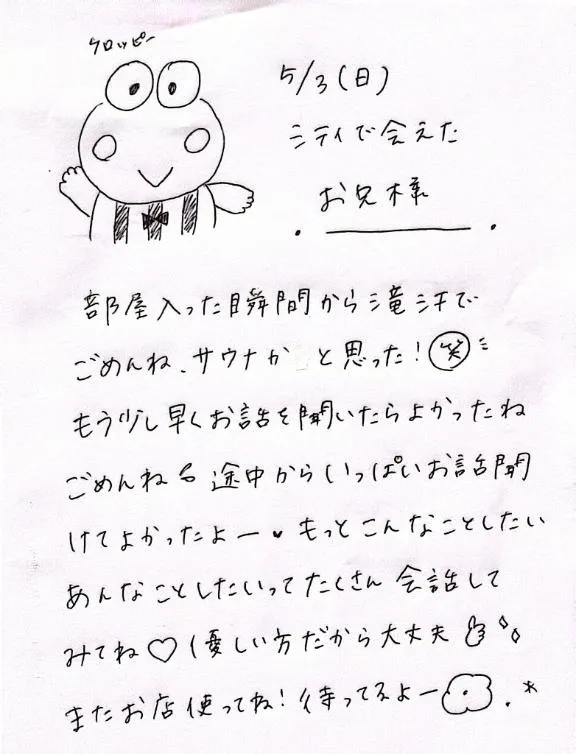 ケロッピー
5/3(日)
シティで会えた
お兄様
部屋入った瞬間から滝汗で
ごめんね、サウナか と思った!笑
もう少し早くお話を聞いたらよかったね
ごめんね 途中からいっぱいお話聞
けてよかったよー♥もっとこんなことしたい
あんなことしたいってたくさん会話して
みてね♡優しい方だから大丈夫
またお店使ってね!待ってるよー.*